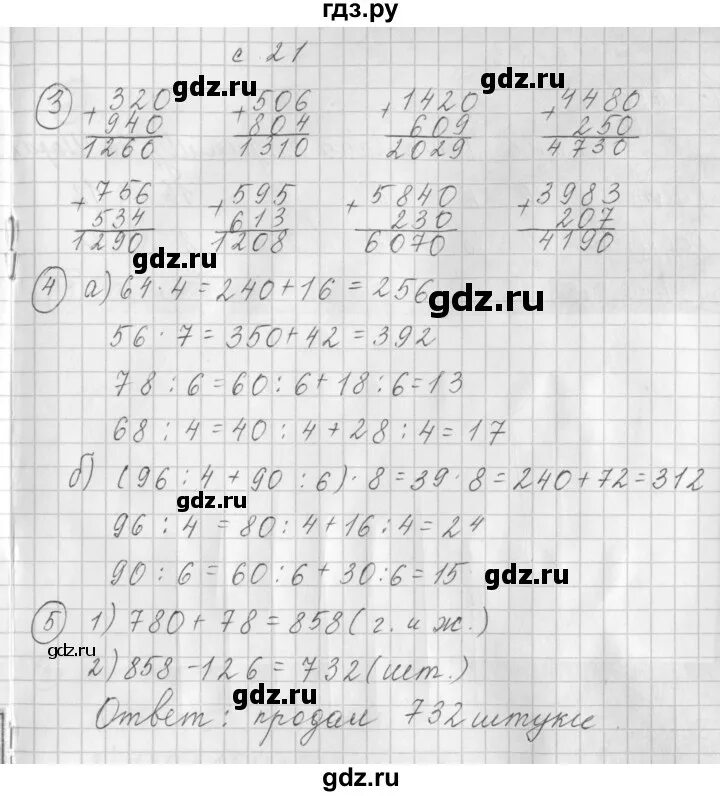 гдз.ру
с 21
gdz.ru gdz.ru
3 320 506 1420 4480
+ 940 + 804 + 609 + 250
1260 1310 2029 4730
756 595 5840 3983
+ 534 + 613 + 230 + 207
1290 1208 6070 4190
gdz.ru
4 а) 64 · 4 = 240 + 16 = 256
gdz.ru
56 · 7 = 350 + 42 = 392
78 : 6 = 60 : 6 + 18 : 6 = 13
68 : 4 = 40 : 4 + 28 : 4 = 17
б) (96 : 4 + 90 : 6) · 8 = 39 · 8 = 240 + 72 = 312
gdz.ru
96 : 4 = 80 : 4 + 16 : 4 = 24
90 : 6 = 60 : 6 + 30 : 6 = 15
gdz.ru
5 1) 780 + 78 = 858 (г. и ж.)
gdz.ru
2) 858 - 126 = 732 (шт.)
gdz.ru
Ответ: продал 732 штуки.
gdz.ru